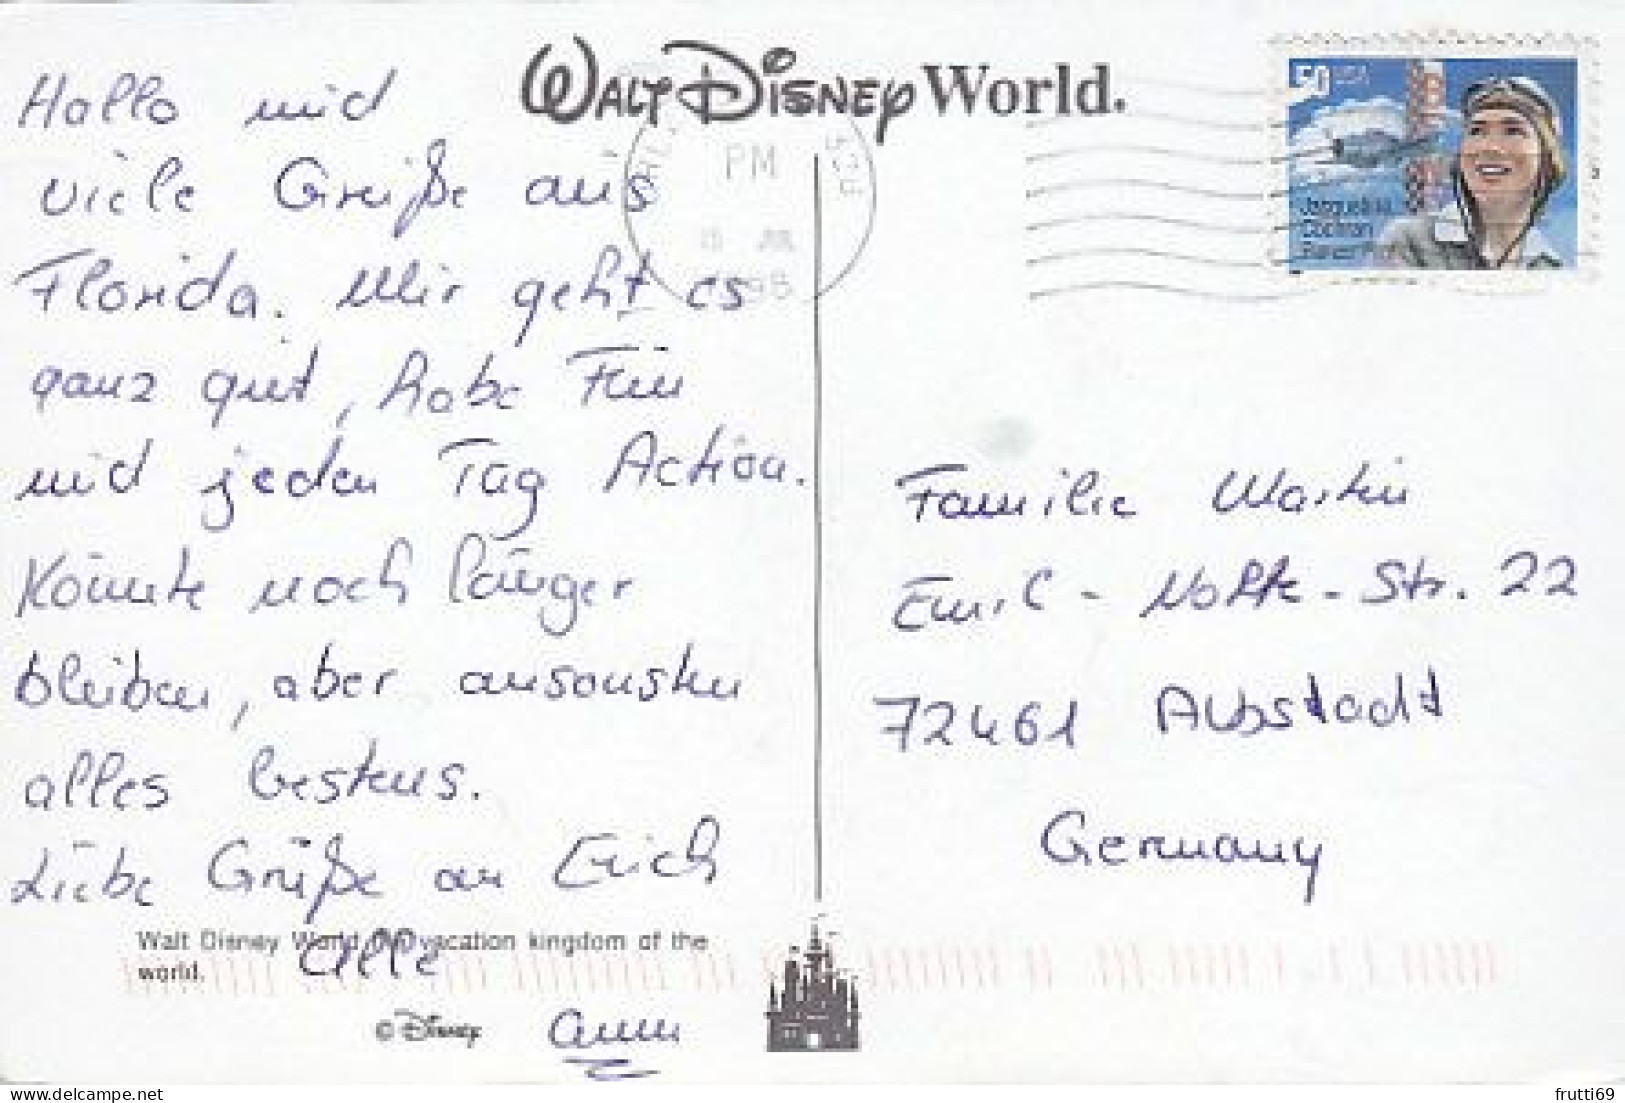 Hallo und
viele Grüße aus
Florida. Mir geht es
ganz gut, habe Fun
und jeden Tag Action.
Könnte noch länger
bleiben, aber ansonsten
alles bestens.
Liebe Grüße an Erich
alle
Walt Disney World vacation kingdom of the
world.
© Disney
WALT DISNEY World.
PM
15 JUL
50 USA
Jacqueline
Cochran
Familie Martin
Emil-Nolte-Str. 22
72461 Albstadt
Germany
frutti69